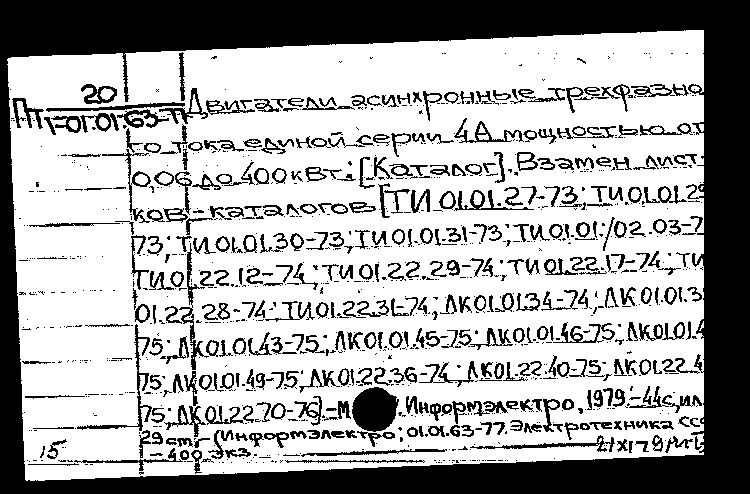 20
ПТ 1-01.01.63-77
Двигатели асинхронные трехфазно
го тока единой серии 4А мощностью от
0,06 до 400 кВт: [Каталог]. Взамен лист-
ков-каталогов [ТИ 01.01.27-73; ТИ 01.01.29
73; ТИ 01.01.30-73; ТИ 01.01.31-73; ТИ 01.01./02.03-7
ТИ 01.22.12-74; ТИ 01.22.29-74; ТИ 01.22.17-74; ТИ
01.22.28-74; ТИ 01.22.31-74; ЛК 01.01.34-74; ЛК 01.01.3
75; ЛК 01.01.43-75; ЛК 01.01.45-75; ЛК 01.01.46-75; ЛК 01.01.4
75; ЛК 01.01.49-75; ЛК 01.22.36-74; ЛК 01.22.40-75; ЛК 01.22.4
75; ЛК 01.22.70-76] -М Информэлектро, 1979.-44с, ил.
29 cm.-(Информэлектро; 01.01.63-77. Электротехника ССС
-400 экз.
15